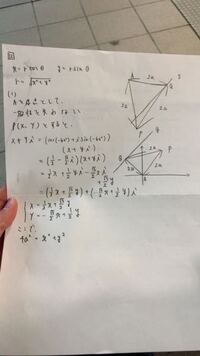 x = r cosθ  y = r sinθ
r = √x²+y²
(1)
Aを原点として、
P(X, Y) とすると、
X + Yi = (cos(-60°) + i sin(-60°))
(x + yi)
= (1/2 - √3/2 i)(x + yi)
= 1/2 x + 1/2 yi - √3/2 xi + √3/2 y
= (1/2 x + √3/2 y) + (-√3/2 x + 1/2 y) i
{ X = 1/2 x + √3/2 y
Y = -√3/2 x + 1/2 y
ここで、
4a² = x² + y²
A
2a
Q
2a
2a
P
Q
P
2a
2a
A